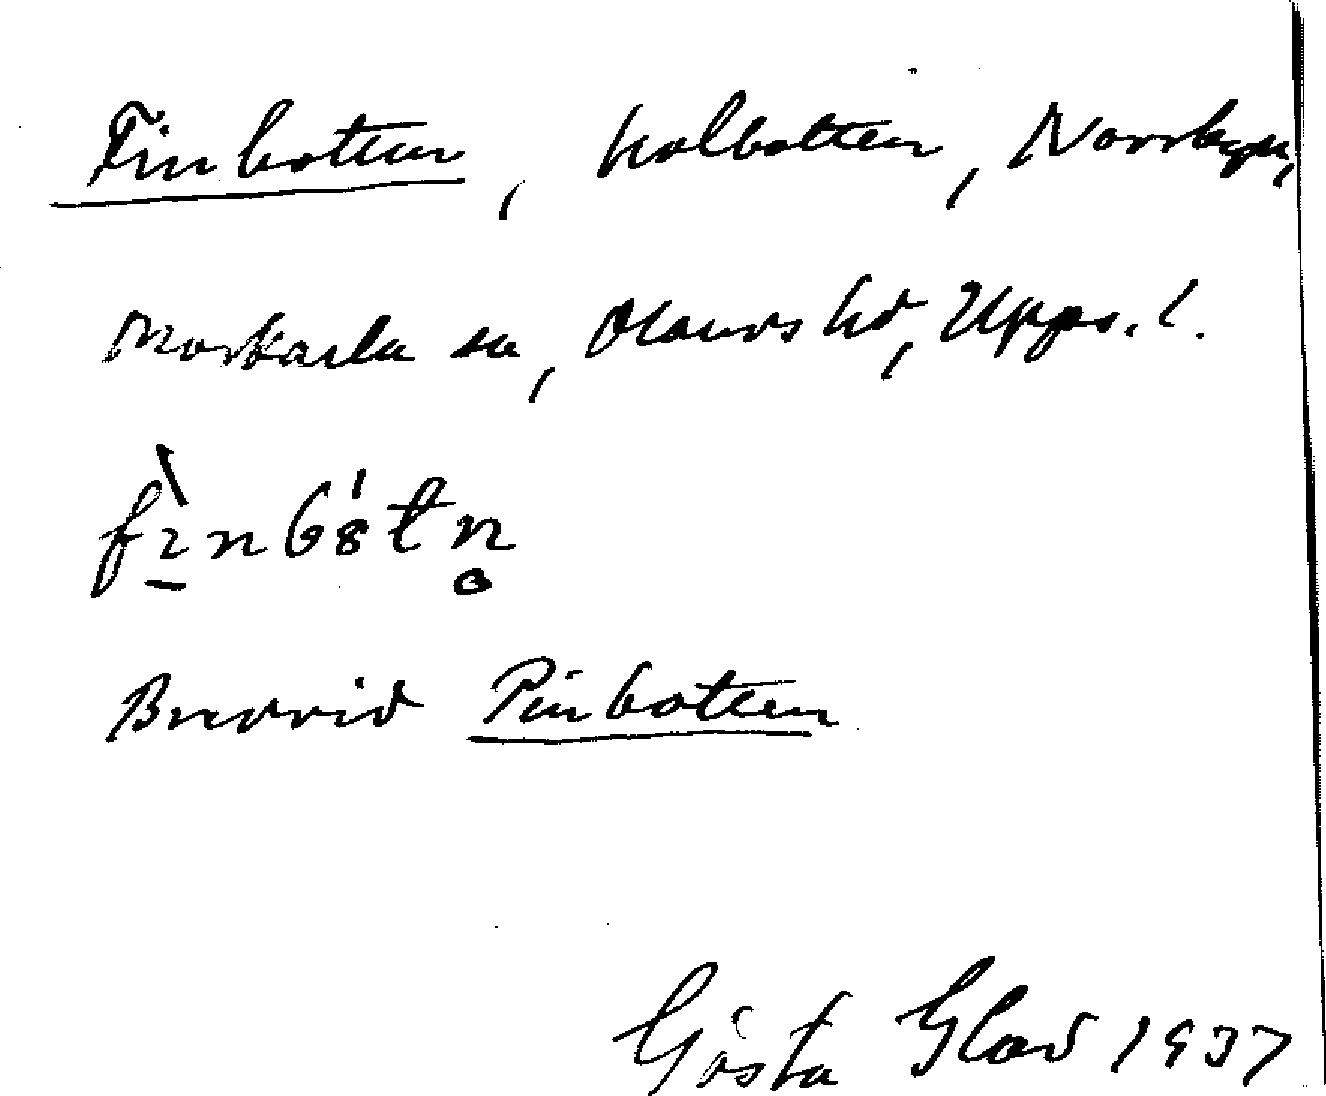 Finbotten, kolbotten, Norrbyn,
Morkarla sn, Olands hd, Upps. l.
fìnbȣ́tn̥
Bredvid Pinbotten
Gösta Glad 1937